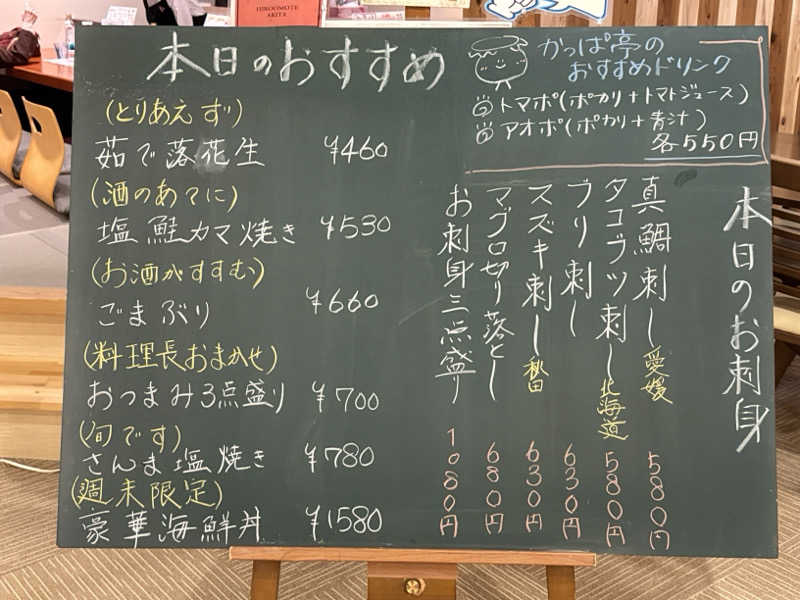 HIROOMOTE
AKITA
本日のおすすめ
(とりあえず)
茹で落花生 ¥460
(酒のあてに)
塩鮭カマ焼き ¥530
(お酒がすすむ)
ごまぶり ¥660
(料理長おまかせ)
おつまみ3点盛り ¥700
(旬です)
さんま塩焼き ¥780
(週末限定)
豪華海鮮丼 ¥1580
かっぱ亭の
おすすめドリンク
トマポ(ポカリ+トマトジュース)
アオポ(ポカリ+青汁)
各550円
本日のお刺身
真鯛刺し 愛媛 580円
タコブツ刺し 北海道 580円
ブリ刺し 630円
スズキ刺し 秋田 630円
マグロ切り落とし 680円
お刺身三点盛り 1080円